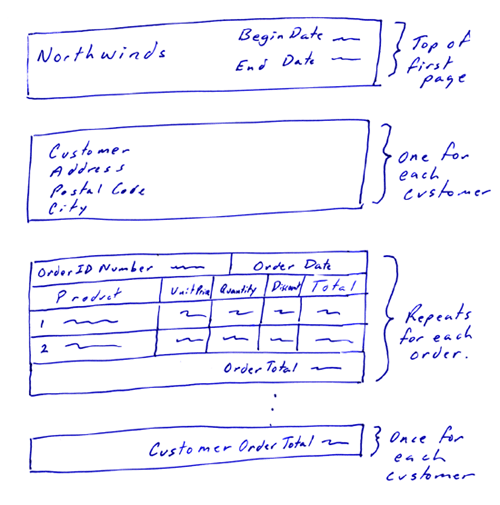 Northwinds
Begin Date
End Date
Top of
first
page
Customer
Address
Postal Code
City
One for
each
customer
Order ID Number
Order Date
Product Unit Price Quantity Discount Total
1
2
Order Total
Repeats
for each
order.
Customer Order Total
Once for
each
customer